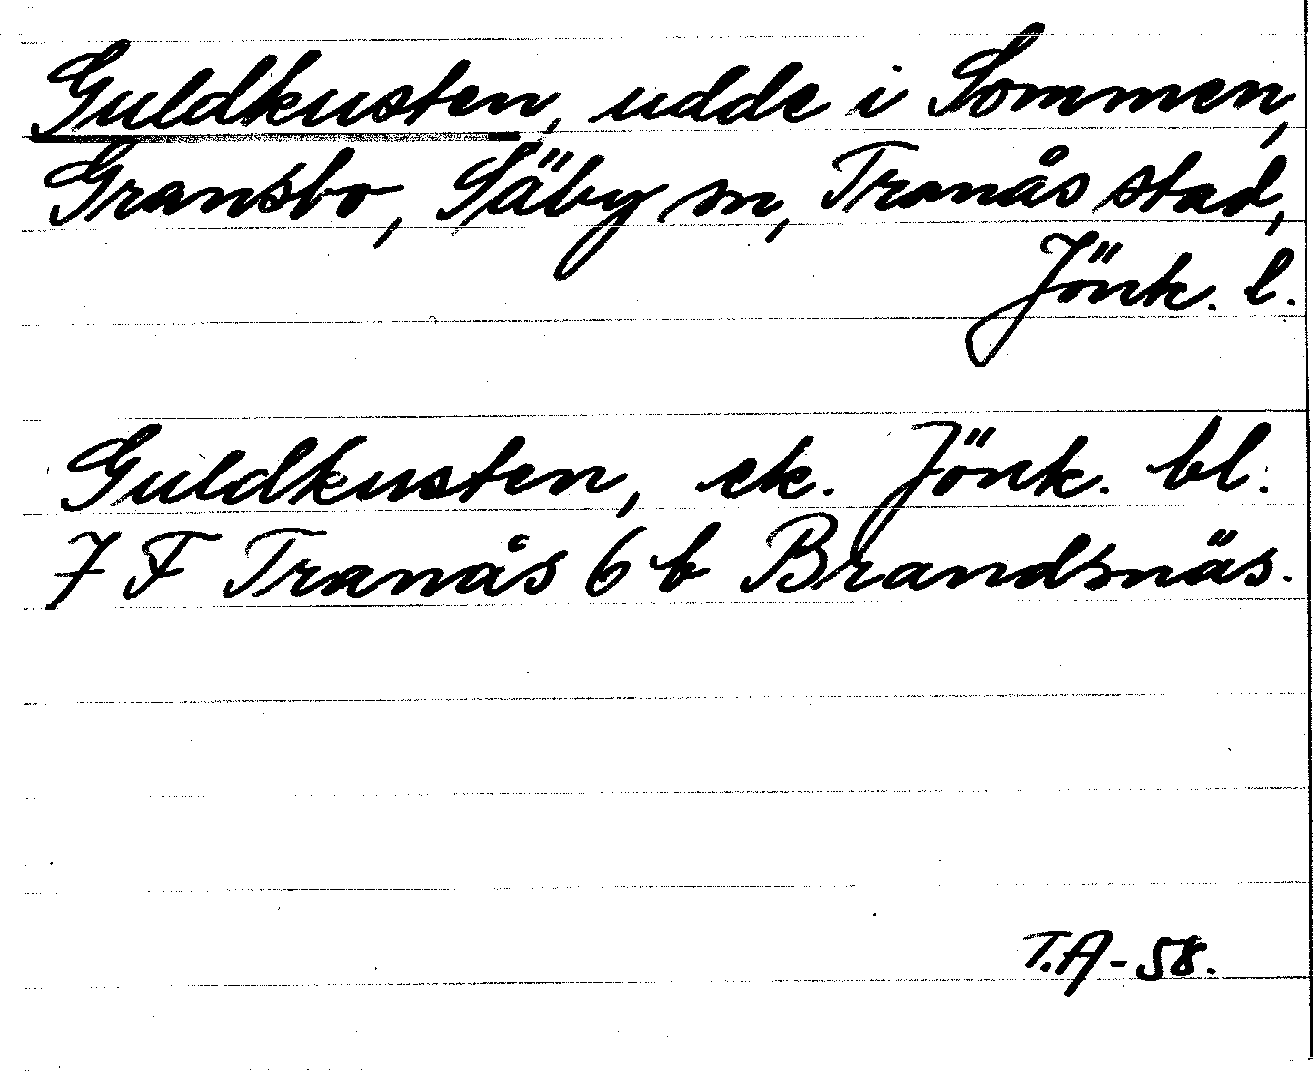 Guldkusten, udde i Sommen,
Gransbo, Säby sn, Tranås stad,
Jönk. l.
Guldkusten, ek. Jönk. bl.
7 F Tranås 6 b Brandsnäs.
T.A - 58.